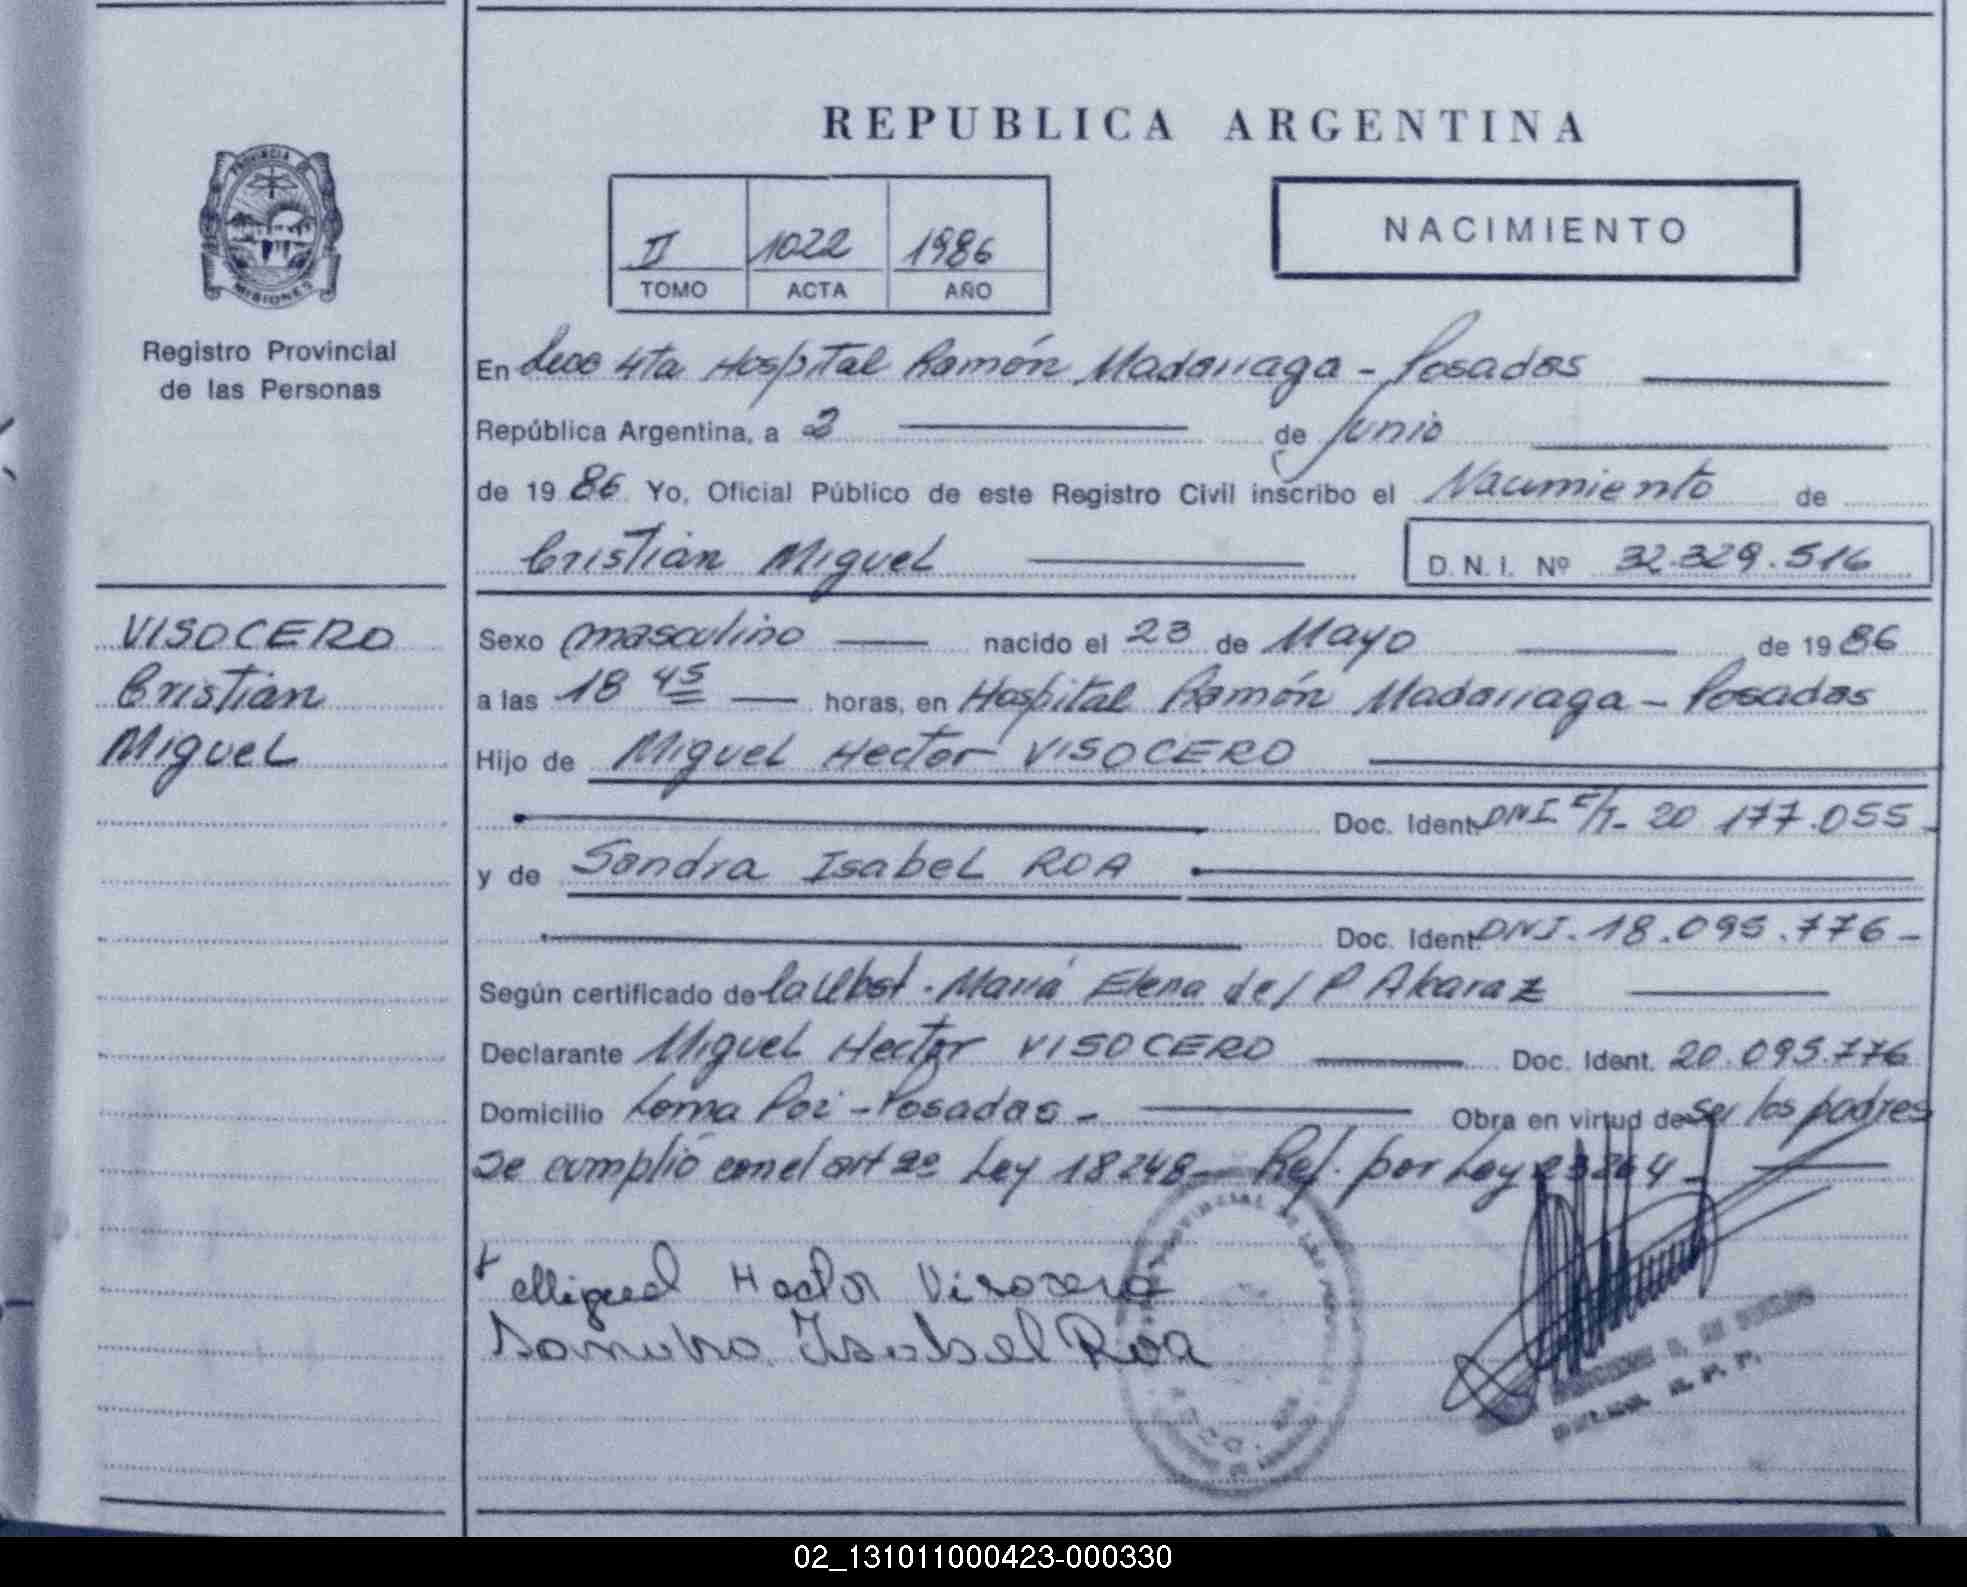 REPUBLICA ARGENTINA
PROVINCIA DE
MISIONES
Registro Provincial
de las Personas
II 1022 1986
TOMO ACTA AÑO
NACIMIENTO
En Secc 4ta Hospital Ramón Madariaga - Posadas
República Argentina, a 2 de Junio
de 1986 Yo, Oficial Público de este Registro Civil inscribo el Nacimiento de
Cristian Miguel D.N.I. Nº 32.329.516
VISOCERO
Cristian
Miguel
Sexo masculino nacido el 23 de Mayo de 1986
a las 18 45 horas, en Hospital Ramón Madariaga - Posadas
Hijo de Miguel Hector VISOCERO
Doc. Ident. DNI 20 177.055-
y de Sandra Isabel ROA
Doc. Ident. DNI. 18.095.776-
Según certificado de la Obst. María Elena del P Alcaraz
Declarante Miguel Hector VISOCERO Doc. Ident. 20.095.776
Domicilio Loma Poi - Posadas - Obra en virtud de ser los padres
Se cumplió con el art 2º Ley 18248- Ref. por Ley 23264-
Miguel Hector Visocero
Sandra Isabel Roa
02_131011000423-000330